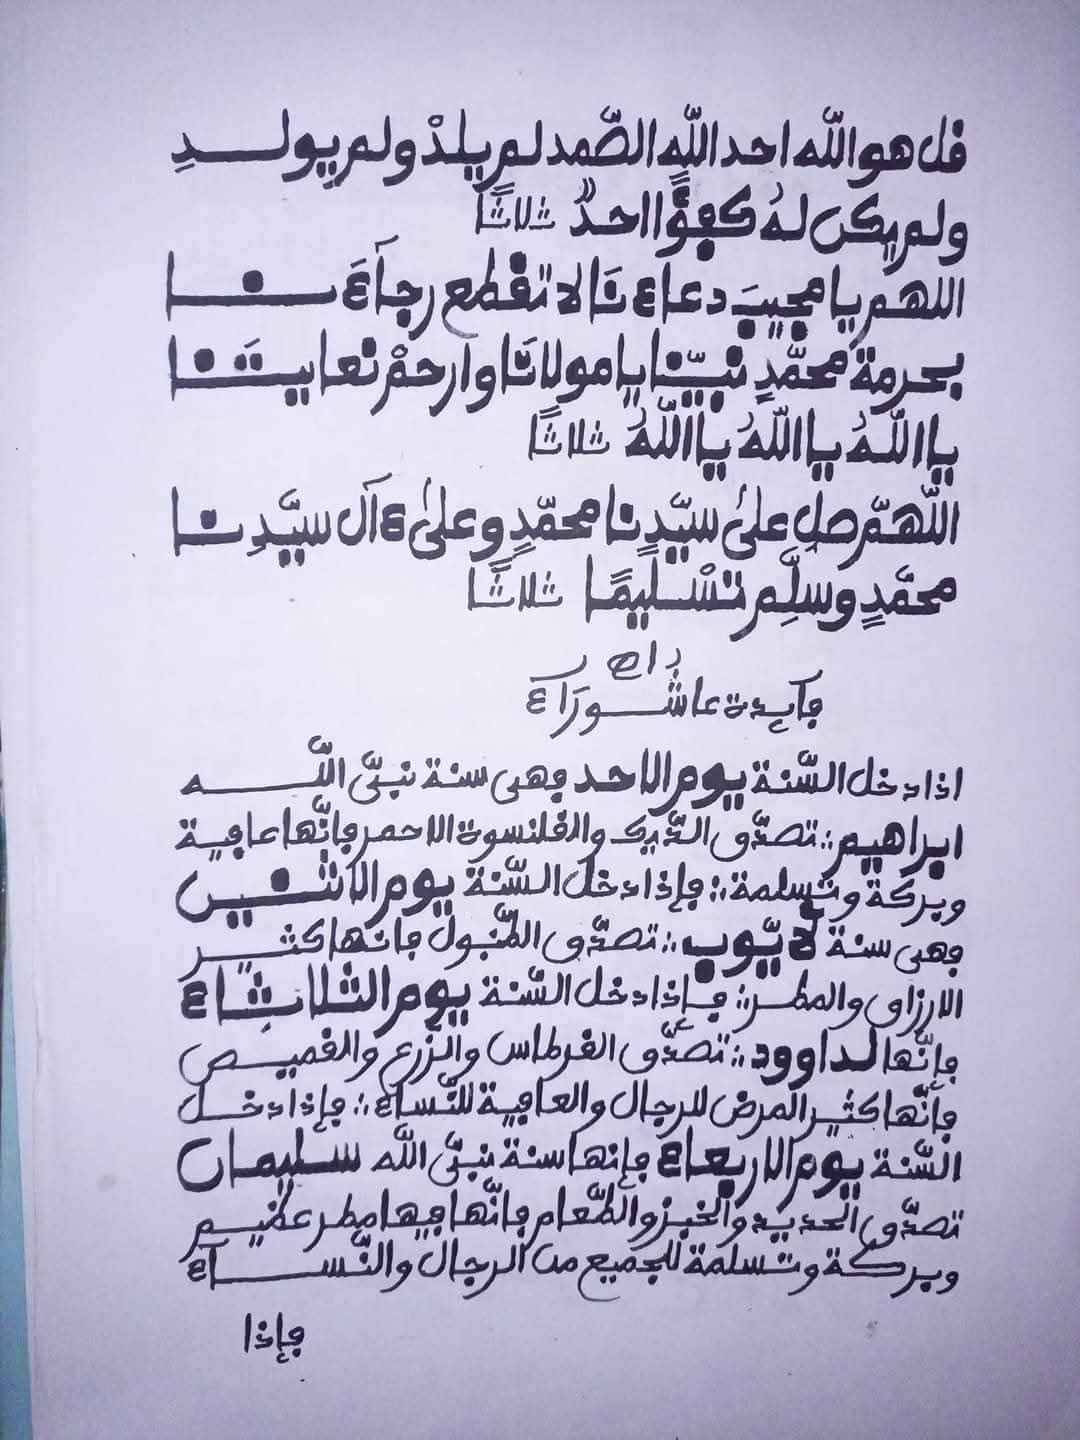 قل هو الله احد الله الصّمد لم يلدْ ولم يولدِ
ولم يكن لهُ كفؤًا احدٌ ثلاثًا
اللهم يا مجيبَ دعاءنَا لا تقطع رجآءَنا
بحرمة محمّدٍ نبيّنا يا مولانَا وارحمْ تعابيتَنا
يا اللّهُ يا اللّهُ يا اللّهُ ثلاثًا
اللّهمّ صل علىٰ سيّدِنا محمّدٍ وعلىٰ ءآل سيّدِنا
محمّدٍ وسلِّم تسْليمًا ثلاثًا
فآيدة عاشورَآء
اذا دخل السّنة يوم الاحد فهى سنة نبىّ اللّه
ابراهيم ؞ تصدّق الدّيك والقلنسوة الاحمر فإنّها عافية
وبركة وتسلمة ؞ فإذا دخل السّنة يوم الاثنين
فهى سنة لأيّوب ؞ تصدّق الطّبول فانها كثر
الارزاق والمطر ؞ فإذا دخل السّنة يوم الثلاثِاء
فإنّها لداوود ؞ تصدّق القرطاس والزرع والقميص
فإنّها كثير المرض للرجال والعافية للنّساء ؞ فإذا دخل
السّنة يوم الاربعاء فإنها سنة نبىّ اللّه سليمان
تصدّق الحديد والخبز والطّعام فإنّها فيها مطر عظيم
وبركة وتسلمة للجميع من الرجال والنّسآء
فإذا